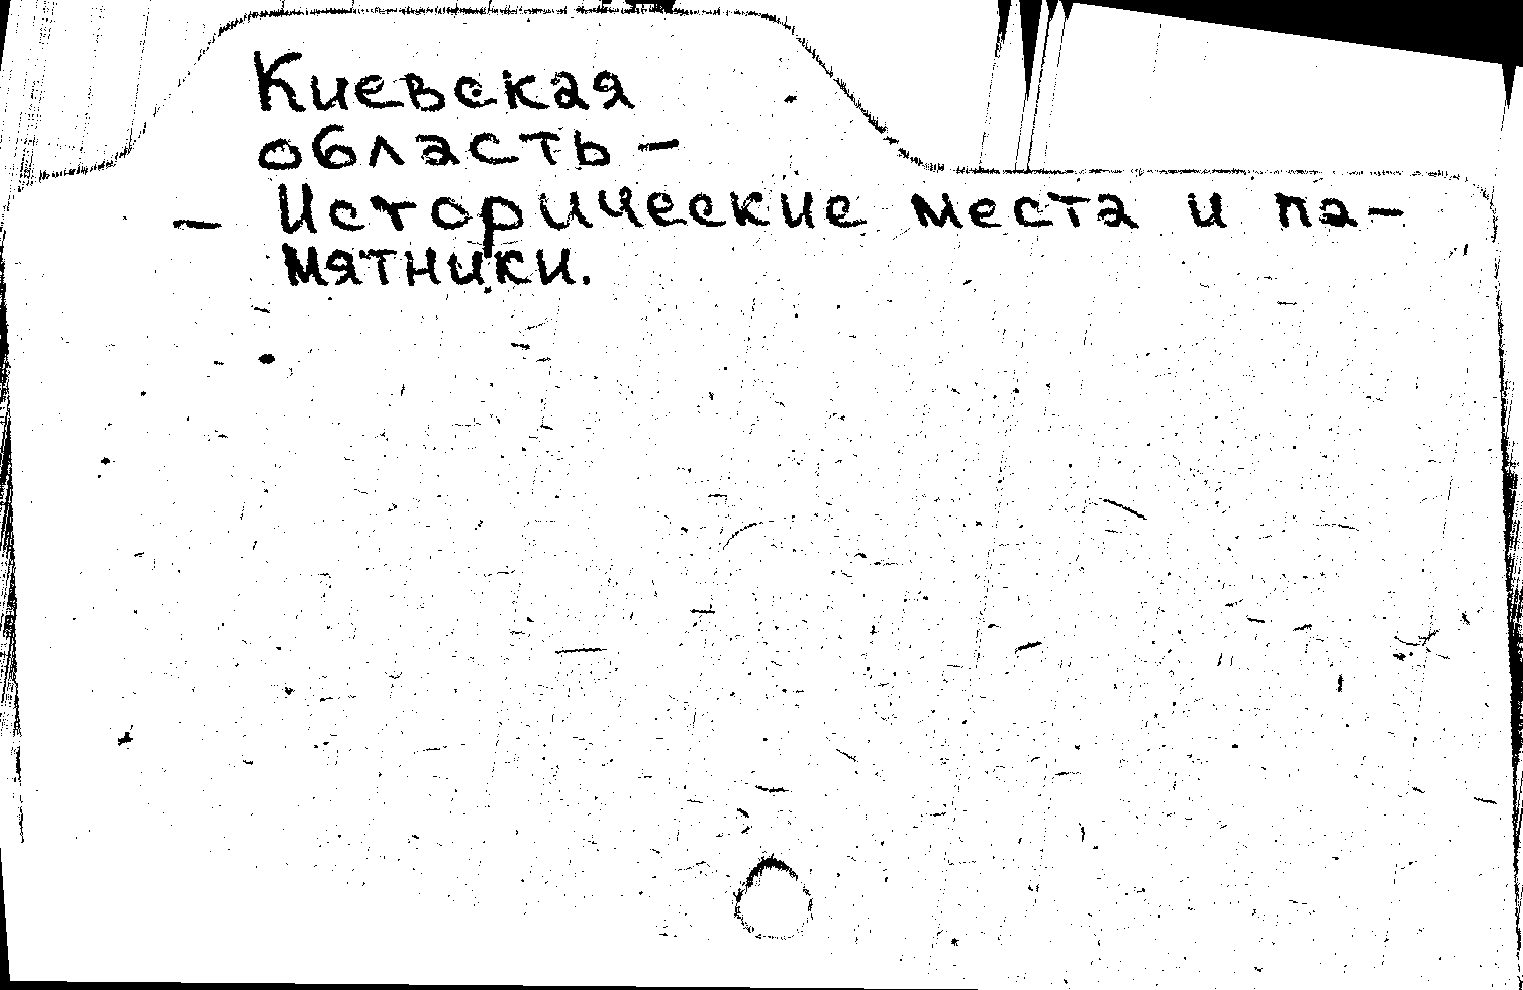 Киевская
область –
– Исторические места и па-
мятники.